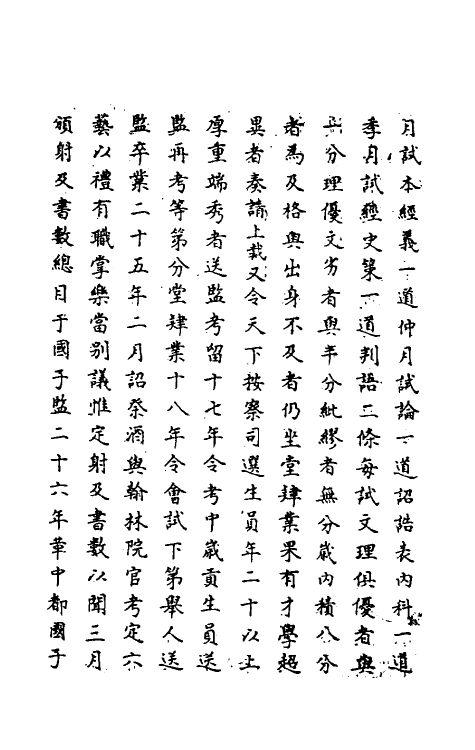 月試本經義一道仲月試論一道詔誥表內科一道
季月試經史策一道判語二條每試文理俱優者與
一分理優文劣者與半分紕繆者無分歲內積八分
者為及格與出身不及者仍坐堂肄業果有才學超
異者奏請上裁又令天下按察司選生員年二十以上
厚重端秀者送監考留十七年令考中歲貢生員送
監再考等第分堂肄業十八年令會試下第舉人送
監卒業二十五年二月詔祭酒與翰林院官考定六
藝以禮有職掌樂當別議惟定射及書數以聞三月
頒射及書數總目于國子監二十六年革中都國子